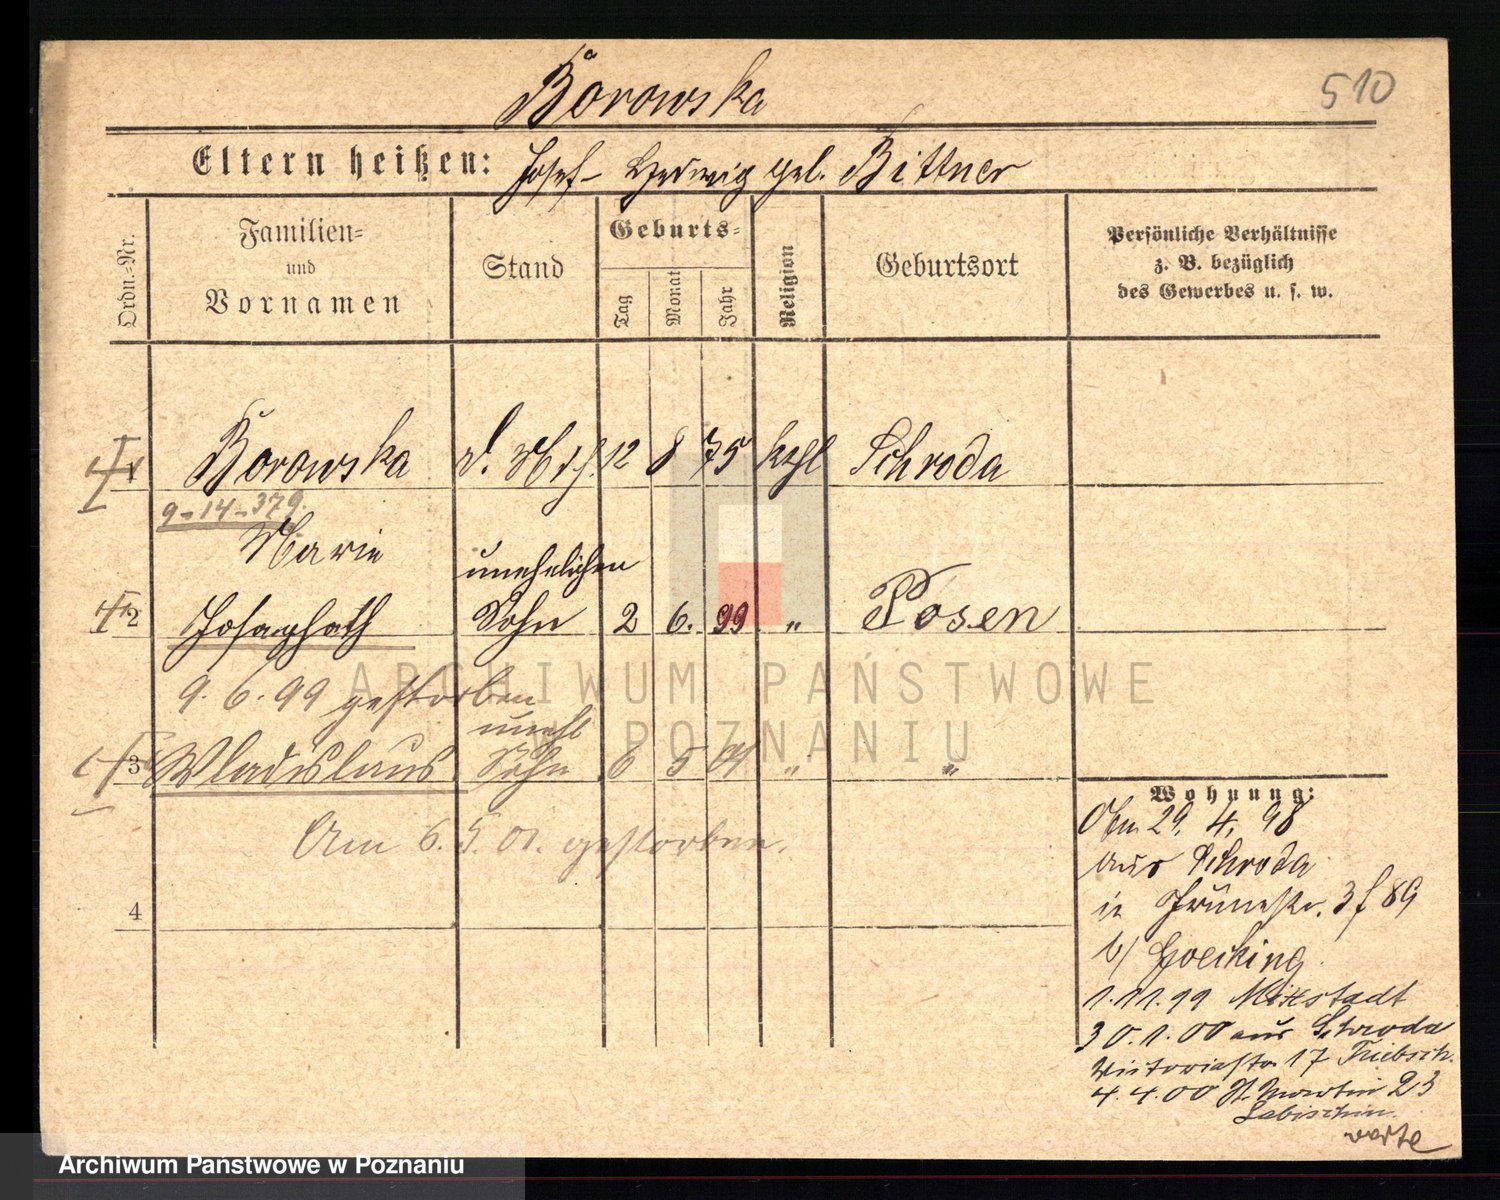 510
Borowska
Eltern heißen: Josef - Hedwig geb. Bittner
Ordn.-Nr.
Familien- und Vornamen
Stand
Geburts-
Tag
Monat
Jahr
Religion
Geburtsort
Persönliche Verhältnisse
z. B. bezüglich
des Gewerbes u. s. w.
1 Borowska 12 8 75 kthl Schroda
9-14-379.
Marie
unehelichen
2 Josaphath Sohn 2 6. 99 " Posen
9. 6. 99 gestorben
unehl
3 Wladislaus Sohn 6 5 01 " "
Am 6. 5. 01. gestorben.
4
Wohnung:
29. 4. 98
aus Schroda
in Grünestr. 3 f 89
b/ Goecking
1. 11. 99 Miłostadt
30. 1. 00 aus Schroda
Victoriastr 17 Triebsch.
4. 4. 00 St. Martin 23
Labischin
verte
ARCHIWUM PAŃSTWOWE
W POZNANIU
Archiwum Państwowe w Poznaniu